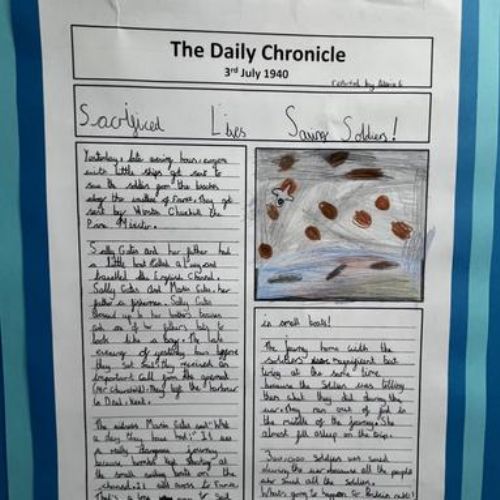 The Daily Chronicle
3rd July 1940
reported by
Sacrificed Lives Saving Soldiers!
Yesterday, late evening hours, anyone
with little ships got sent to
save the soldiers from the beaches
along the of France. They got
sent by Winston Churchill the
Prime Minister.
Sally Gates and her father had
a little boat called a and
travelled the English Channel.
Sally Gates and Marvin Gates, her
father a fisherman. Sally Gates
up to her brothers
and one of her fathers hats to
look like a boy. The late
evening of yesterday hours before
they set sail they received an
important call from the general
They left the harbour
in Deal, Kent.
The witness Marvin Gates said "What
a day they have had!" It was
a really dangerous journey
because bombs kept at
the small sailing boats on the
channel. It all across to France.
That's a long way to sail
in small boats!
The journey home with the
soldiers magnificent but
tiring at the same time
because the soldiers was telling
them what they did during the
war. They ran out of fuel in
the middle of the journey. She
almost fell asleep on the trip.
300,000 Soldiers was saved
during the war because all the people
who saved all the soldiers.
What's going to happen to Britain next?